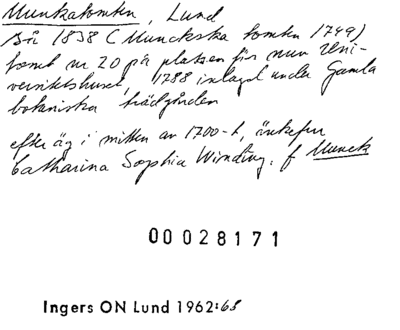 Munkatomten, Lund
Så 1838 (Munckska tomten 1749)
tomt nr 20 på platsen för nuv Uni-
versitetshuset 1788 inlagd under Gamla
botaniska trädgården
efter äg i mitten av 1700-t, änkefru
Catharina Sophia Winding, f Munck
00028171
Ingers ON Lund 1962:65